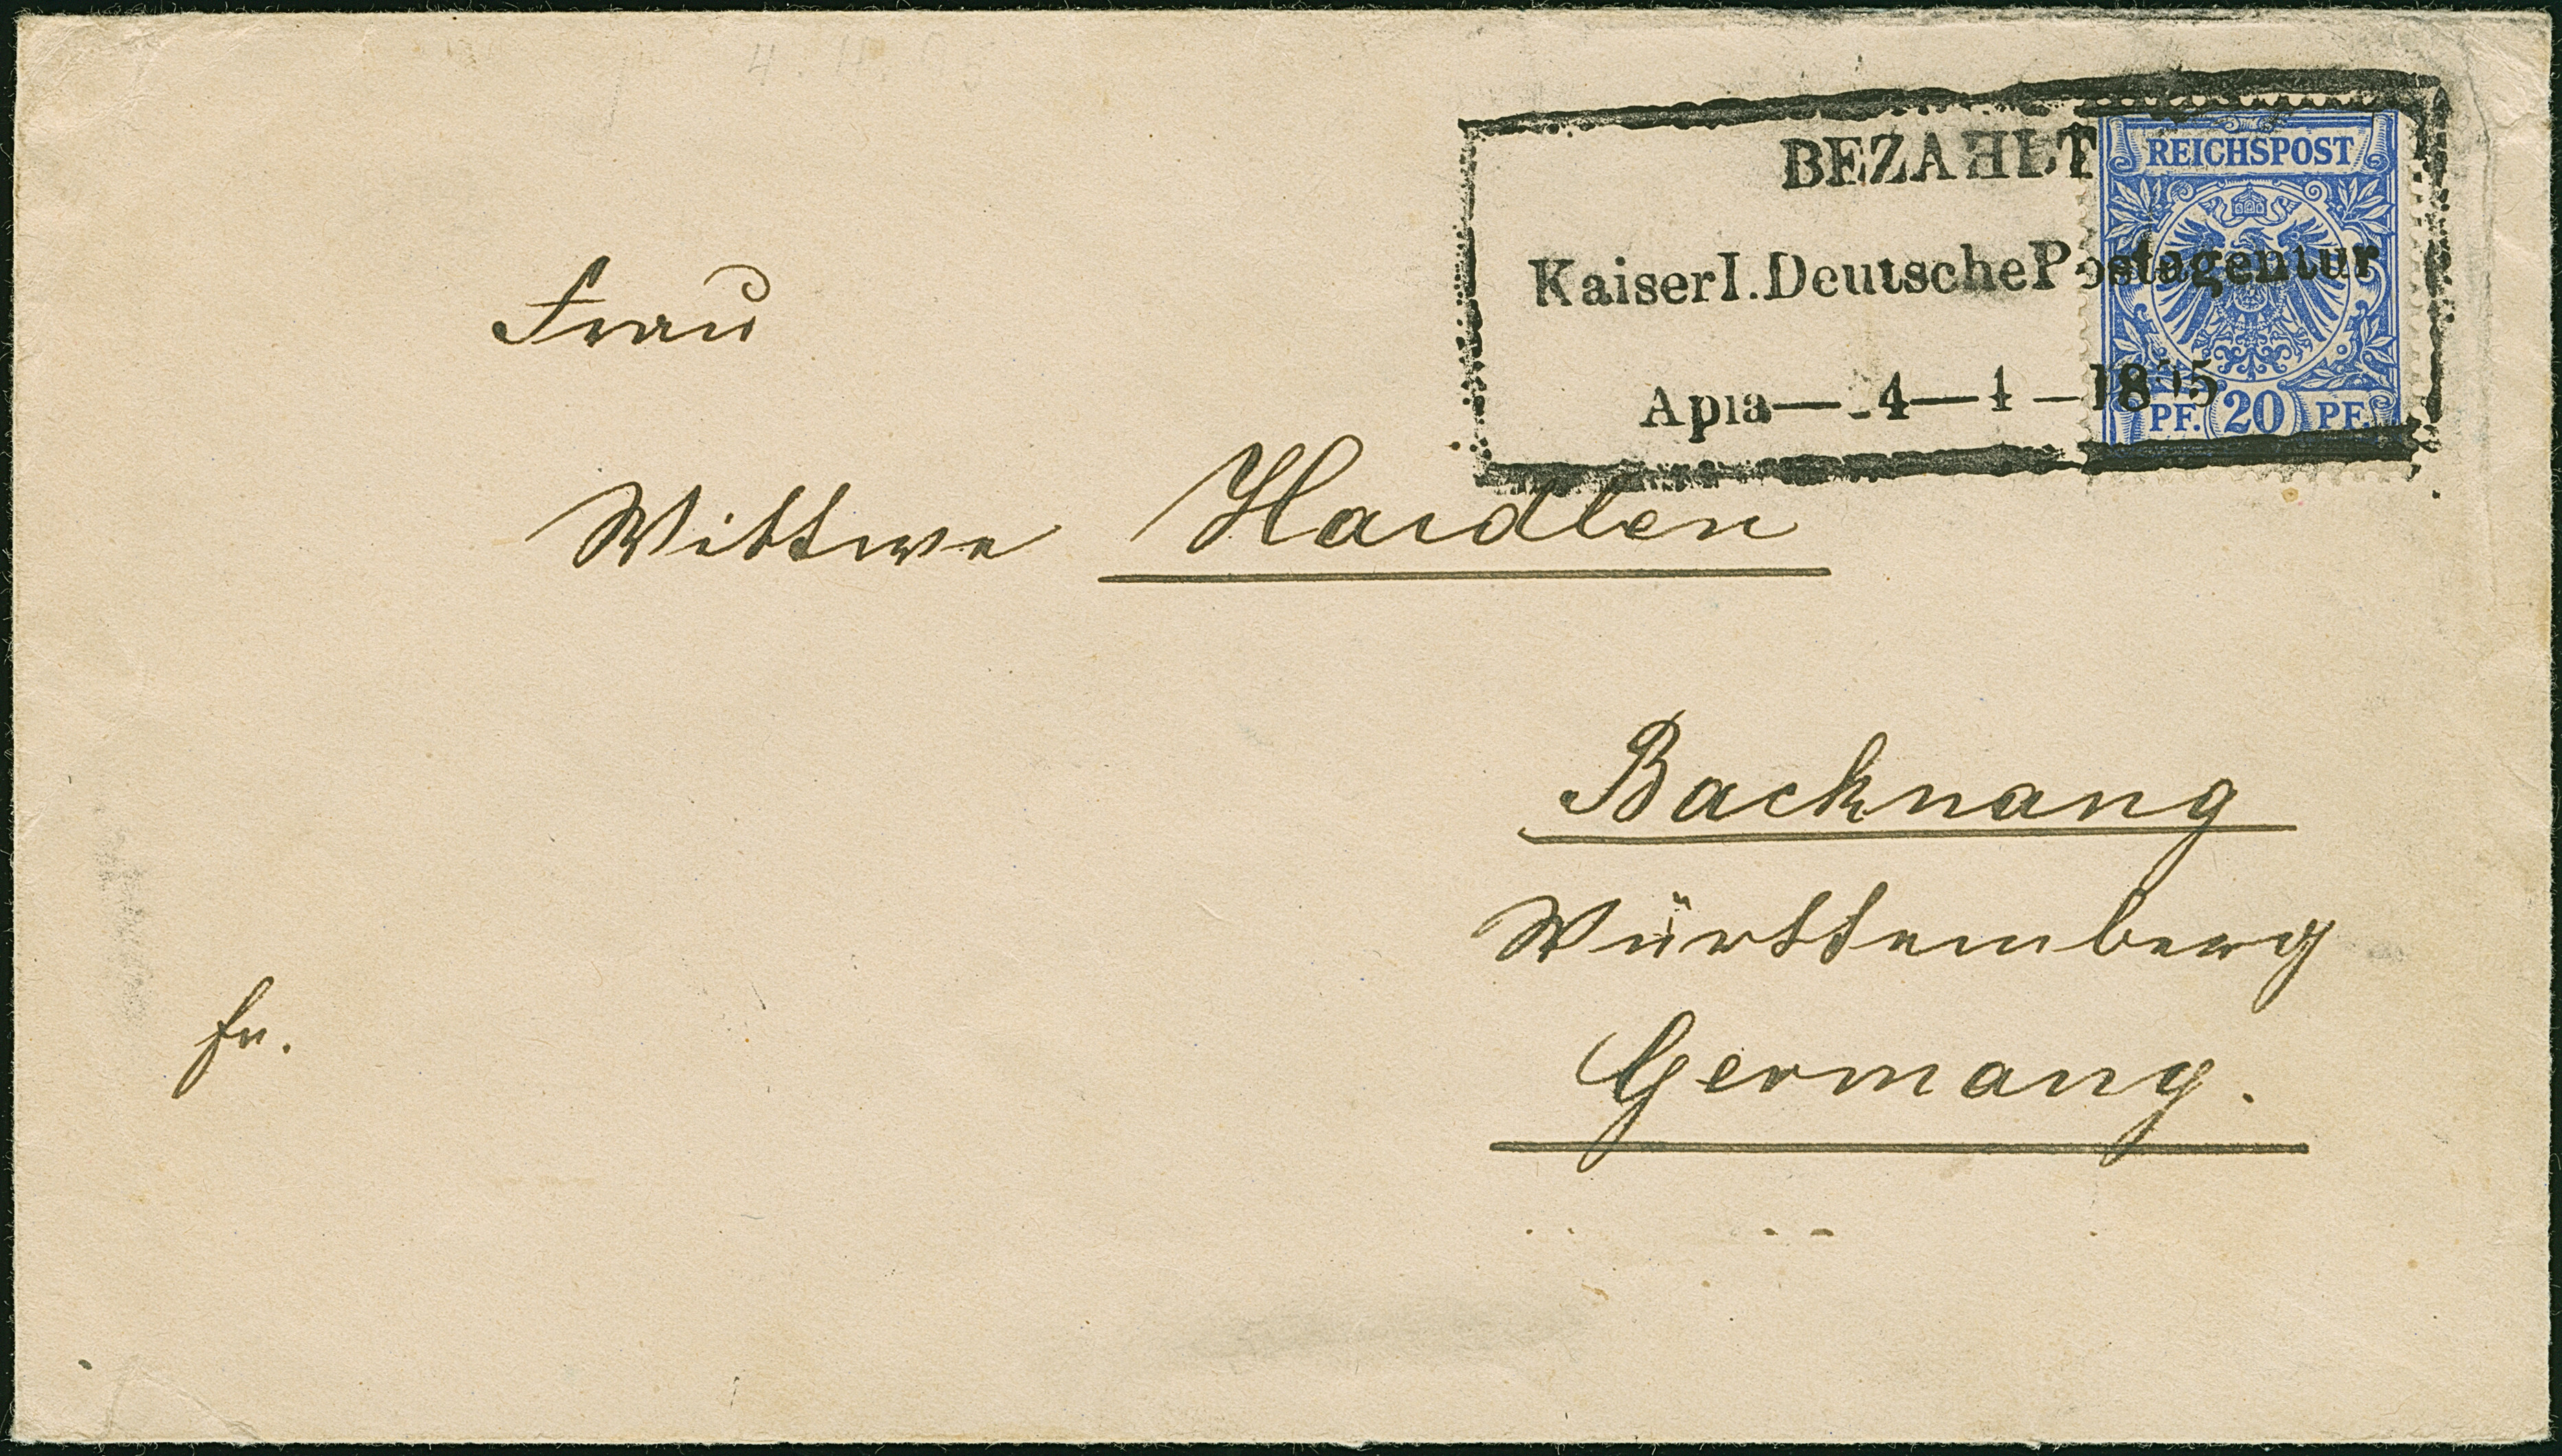 BEZAHLT
Kaiserl. Deutsche Postagentur
Apia — 4 — 4 — 1895
REICHSPOST
PF. 20 PF.
Frau
Wittwe Haidlen
Backnang
Württemberg
Germany.
fr.